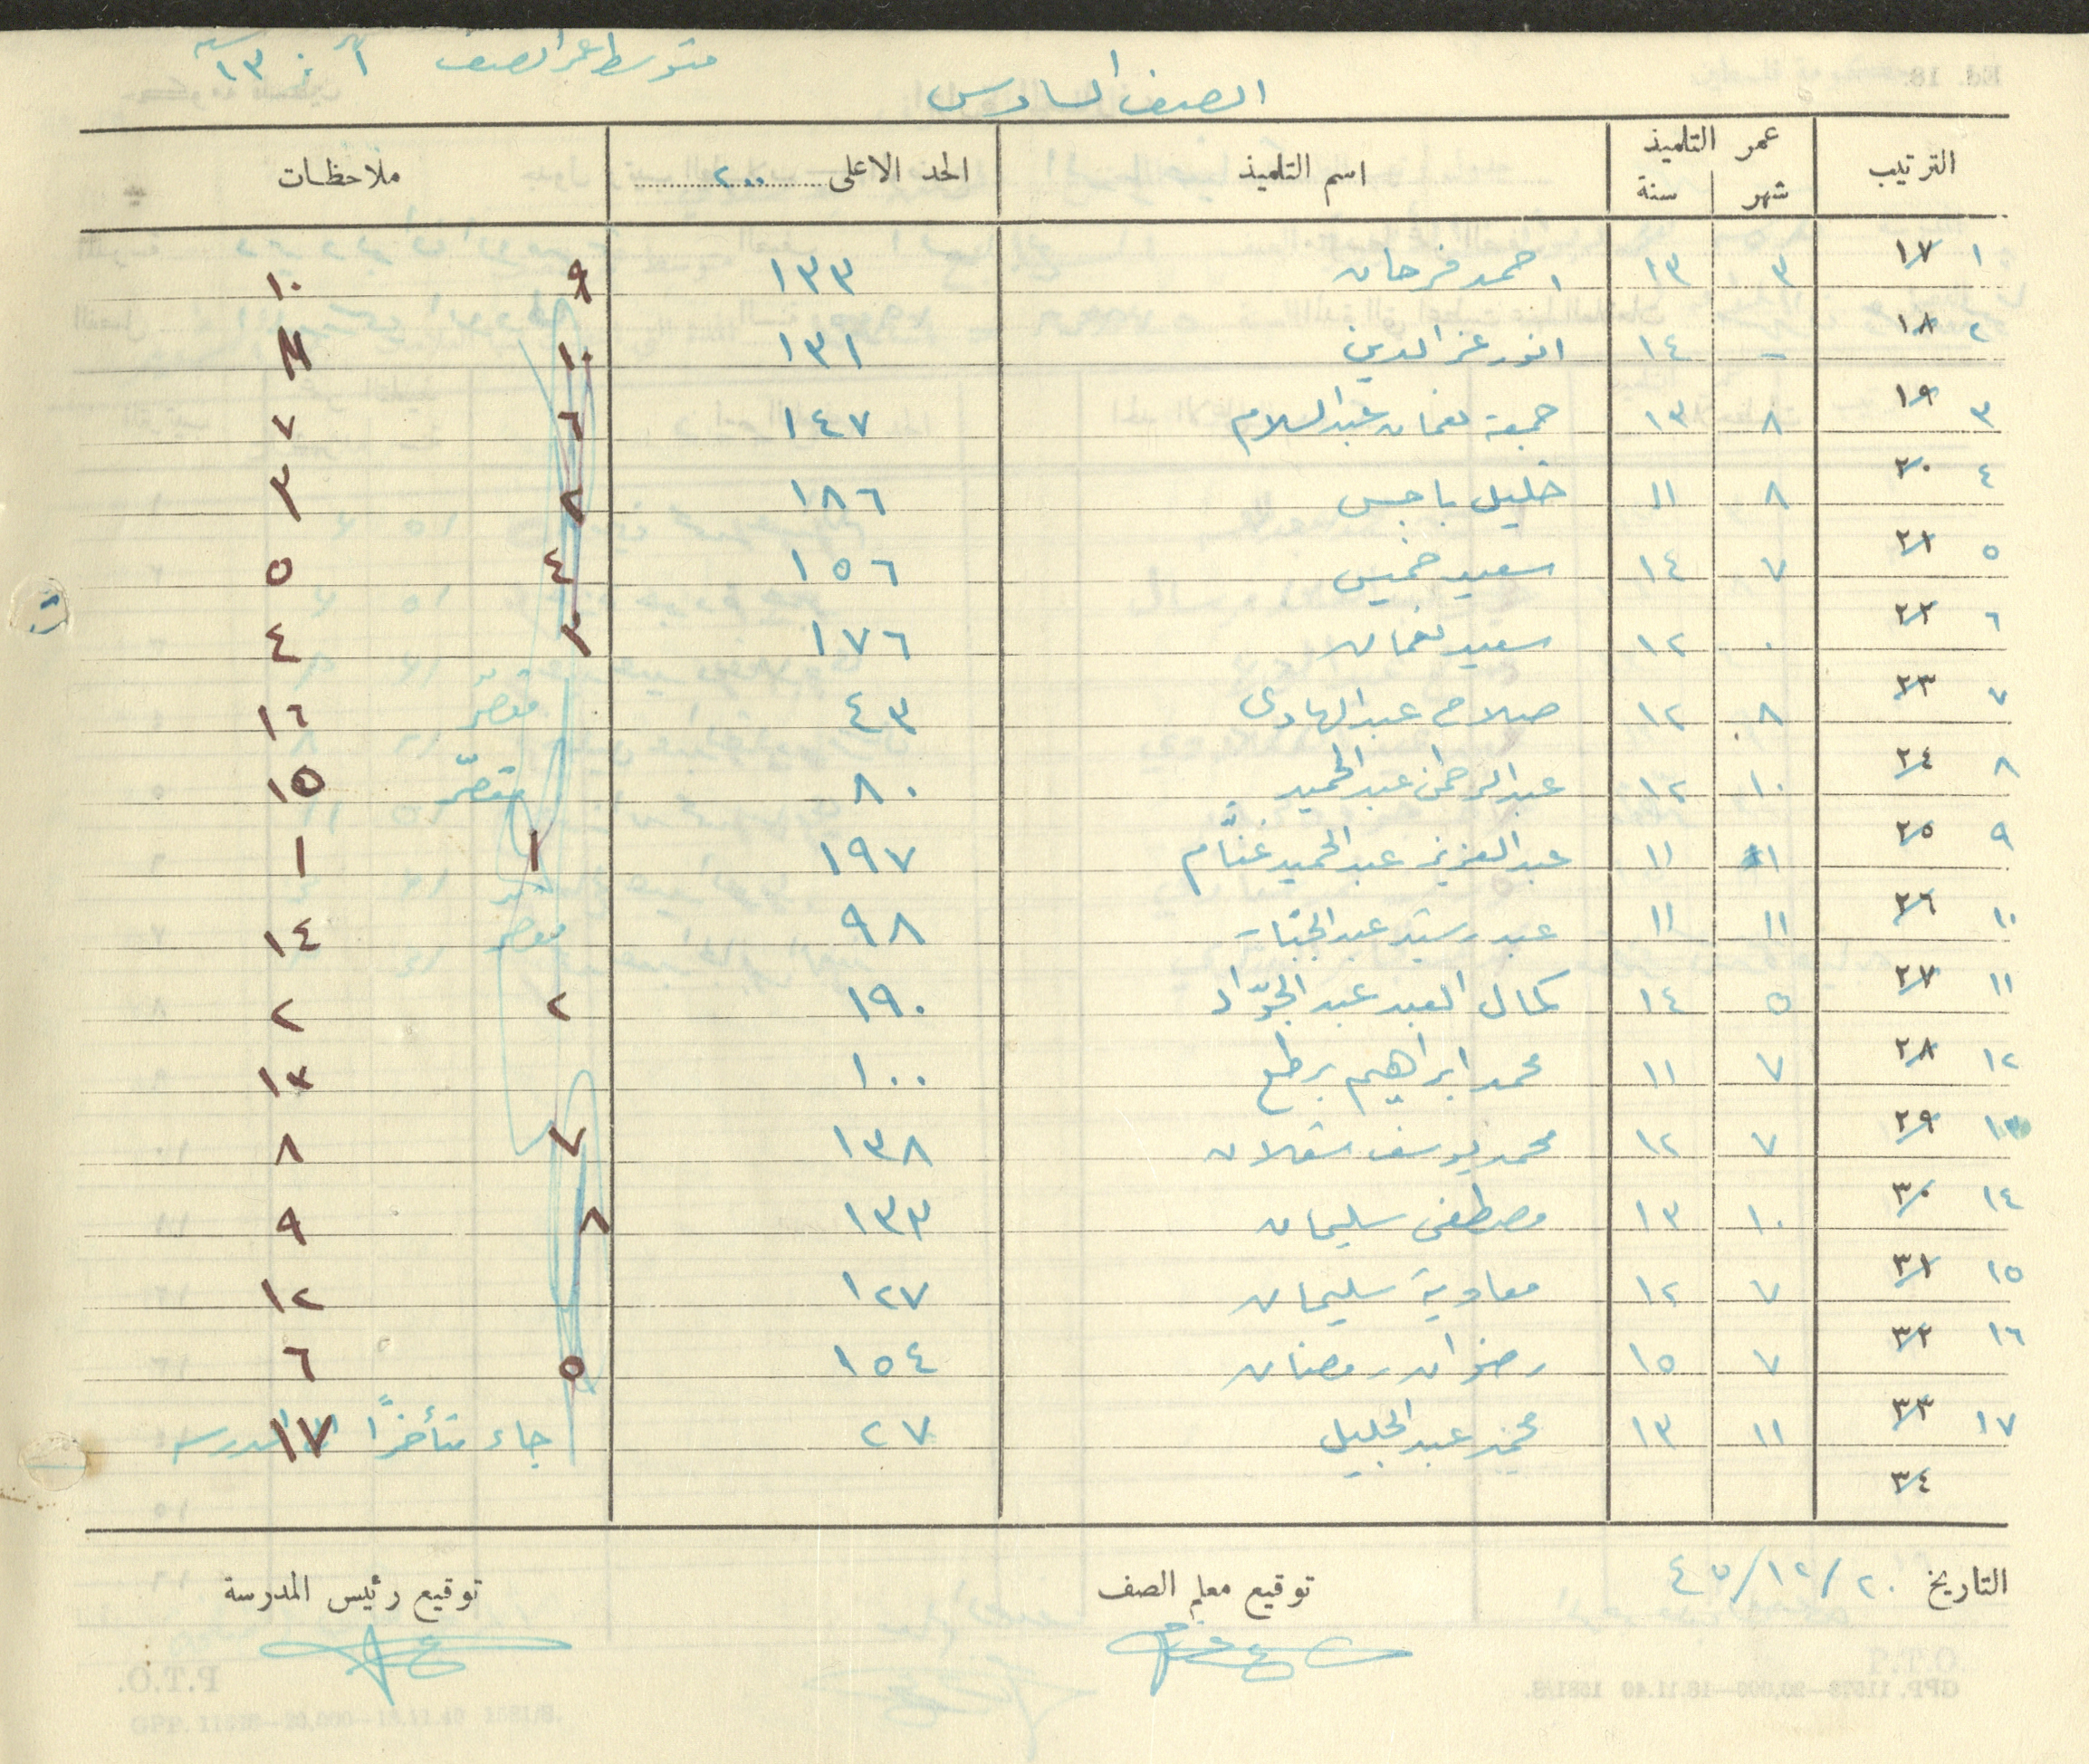 متوسط عمر الصف ١ شهر ١٣ سنه
الصف السادس
الترتيب | عمر التلميذ | اسم التلميذ | الحد الاعلى ٢٠٠ | ملاحظات
شهر | سنة
١ | ١٧ | ٣ | ١٣ | احمد فرحان | ١٣٣ | ٩ | ١٠
٢ | ١٨ | - | ١٤ | انور عز الدين | ١٣١ | ١٠ | ١١
٣ | ١٩ | ٨ | ١٣ | جمعة نعمان عبد السلام | ١٤٧ | ٦ | ٧
٤ | ٢٠ | ٨ | ١١ | خليل باجس | ١٨٦ | ٢ | ٣
٥ | ٢١ | ٧ | ١٤ | سعيد خميس | ١٥٦ | ٤ | ٥
٦ | ٢٢ | ٠ | ١٢ | سعيد نعمان | ١٧٦ | ٣ | ٤
٧ | ٢٣ | ٨ | ١٢ | صلاح عبد الهادى | ٤٣ | مقصّر | ١٦
٨ | ٢٤ | ١٠ | ١٢ | عبد الرحمن عبد الحميد | ٨٠ | مقصّر | ١٥
٩ | ٢٥ | ١ | ١١ | عبد العزيز عبد الحميد غنّام | ١٩٧ | ١ | ١
١٠ | ٢٦ | ١١ | ١١ | عبد رشيد عبد الجبّار | ٩٨ | مقصر | ١٤
١١ | ٢٧ | ٥ | ١٤ | كمال العبد عبد الجوّاد | ١٩٠ | ٢ | ٢
١٢ | ٢٨ | ٧ | ١١ | محمد ابراهيم برطع | ١٠٠ | ١٣
١٣ | ٢٩ | ٧ | ١٢ | محمد يوسف شعلان | ١٣٨ | ٧ | ٨
١٤ | ٣٠ | ١٠ | ١٣ | مصطفى سليمان | ١٣٣ | ٨ | ٩
١٥ | ٣١ | ٧ | ١٢ | معاوية سليمان | ١٢٧ | ١٢
١٦ | ٣٢ | ٧ | ١٥ | رضوان رمضان | ١٥٤ | ٥ | ٦
١٧ | ٣٣ | ١١ | ١٣ | محمد عبد الجليل | ٢٧ | جاء متأخرًا الى المدرسه | ١٧
٣٤
التاريخ ٢٠/١٢/٤٥ توقيع معلم الصف توقيع رئيس المدرسة